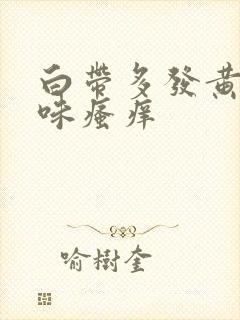 白帶多發黃
味瘙痒
喻樹奎